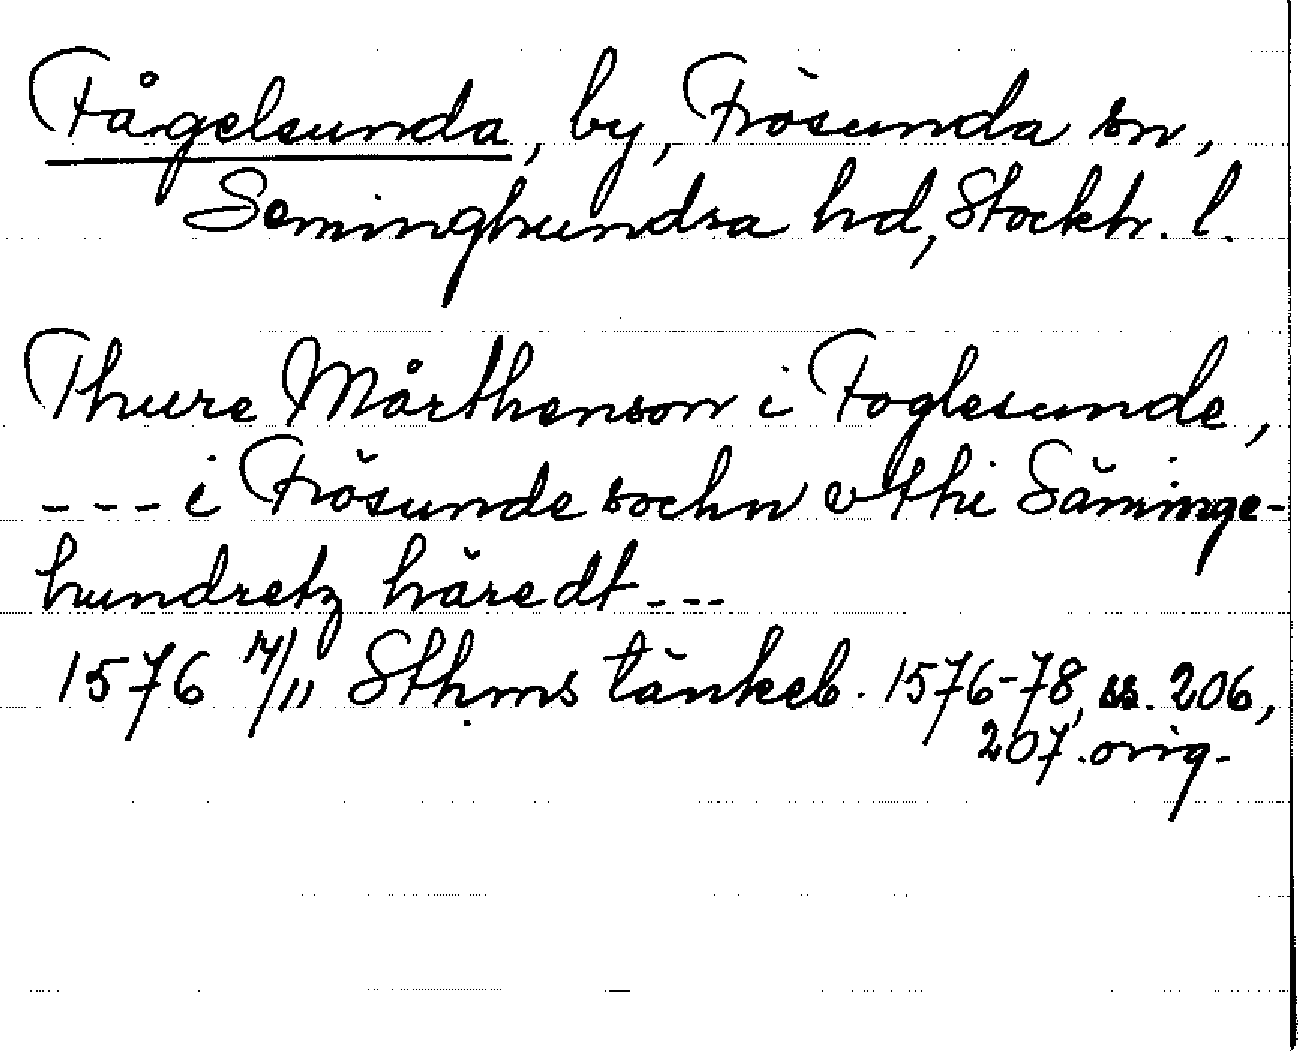 Fågelsunda, by, Frösunda sn,
Seminghundra hd, Stockh. l.
Thure Mårthenson i Foglesunde,
--- i Frösunde sochn vthi Säminge-
hundretz häredt ---
1576 17/11 Sthms tänkeb. 1576-78, ss. 206,
207. orig.